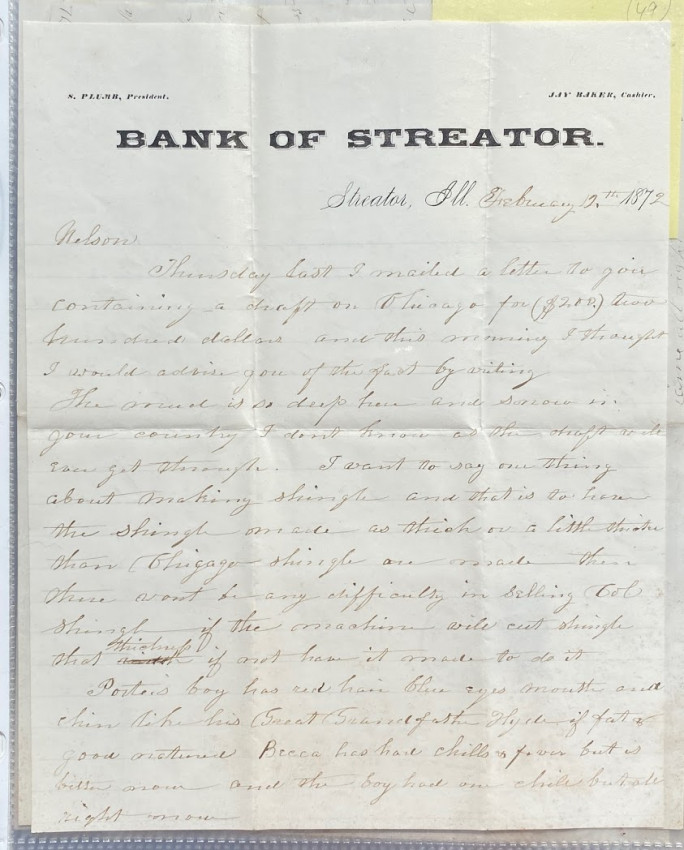 (49)
S. PLUMB, President. JAY BAKER, Cashier.
BANK OF STREATOR.
Streator, Ill. February 12th 1872
Nelson
Thursday last I mailed a letter to you
containing a draft on Chicago for ($200.) two
hundred dollars and this morning I thought
I would advise you of the fact by writing
The mud is so deep here and snow in
your country I dont know as the draft will
ever get through. I want to say one thing
about making shingle and that is to have
the shingle made as thick or a little thicker
than Chicago shingle are made then
there wont be any difficulty in selling Col
shingle if the machine will cut shingle
that thickness if not have it made to do it
Porters boy has red hair blue eyes mouth and
chin like his Great Grandfather Hyde if fat &
good natured Becca has had chills & fever but is
better now and the boy had one chill but all
right now